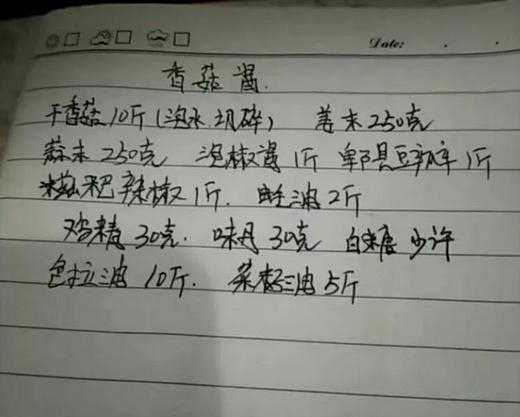 Date:
香菇酱.
干香菇10斤(泡水.切碎) 姜末250克
蒜末250克 泡椒酱1斤 郫县豆瓣1斤
糍粑辣椒1斤. 蚝油2斤
鸡精30克. 味丹30克 白糖少许
色拉油10斤. 菜籽油5斤